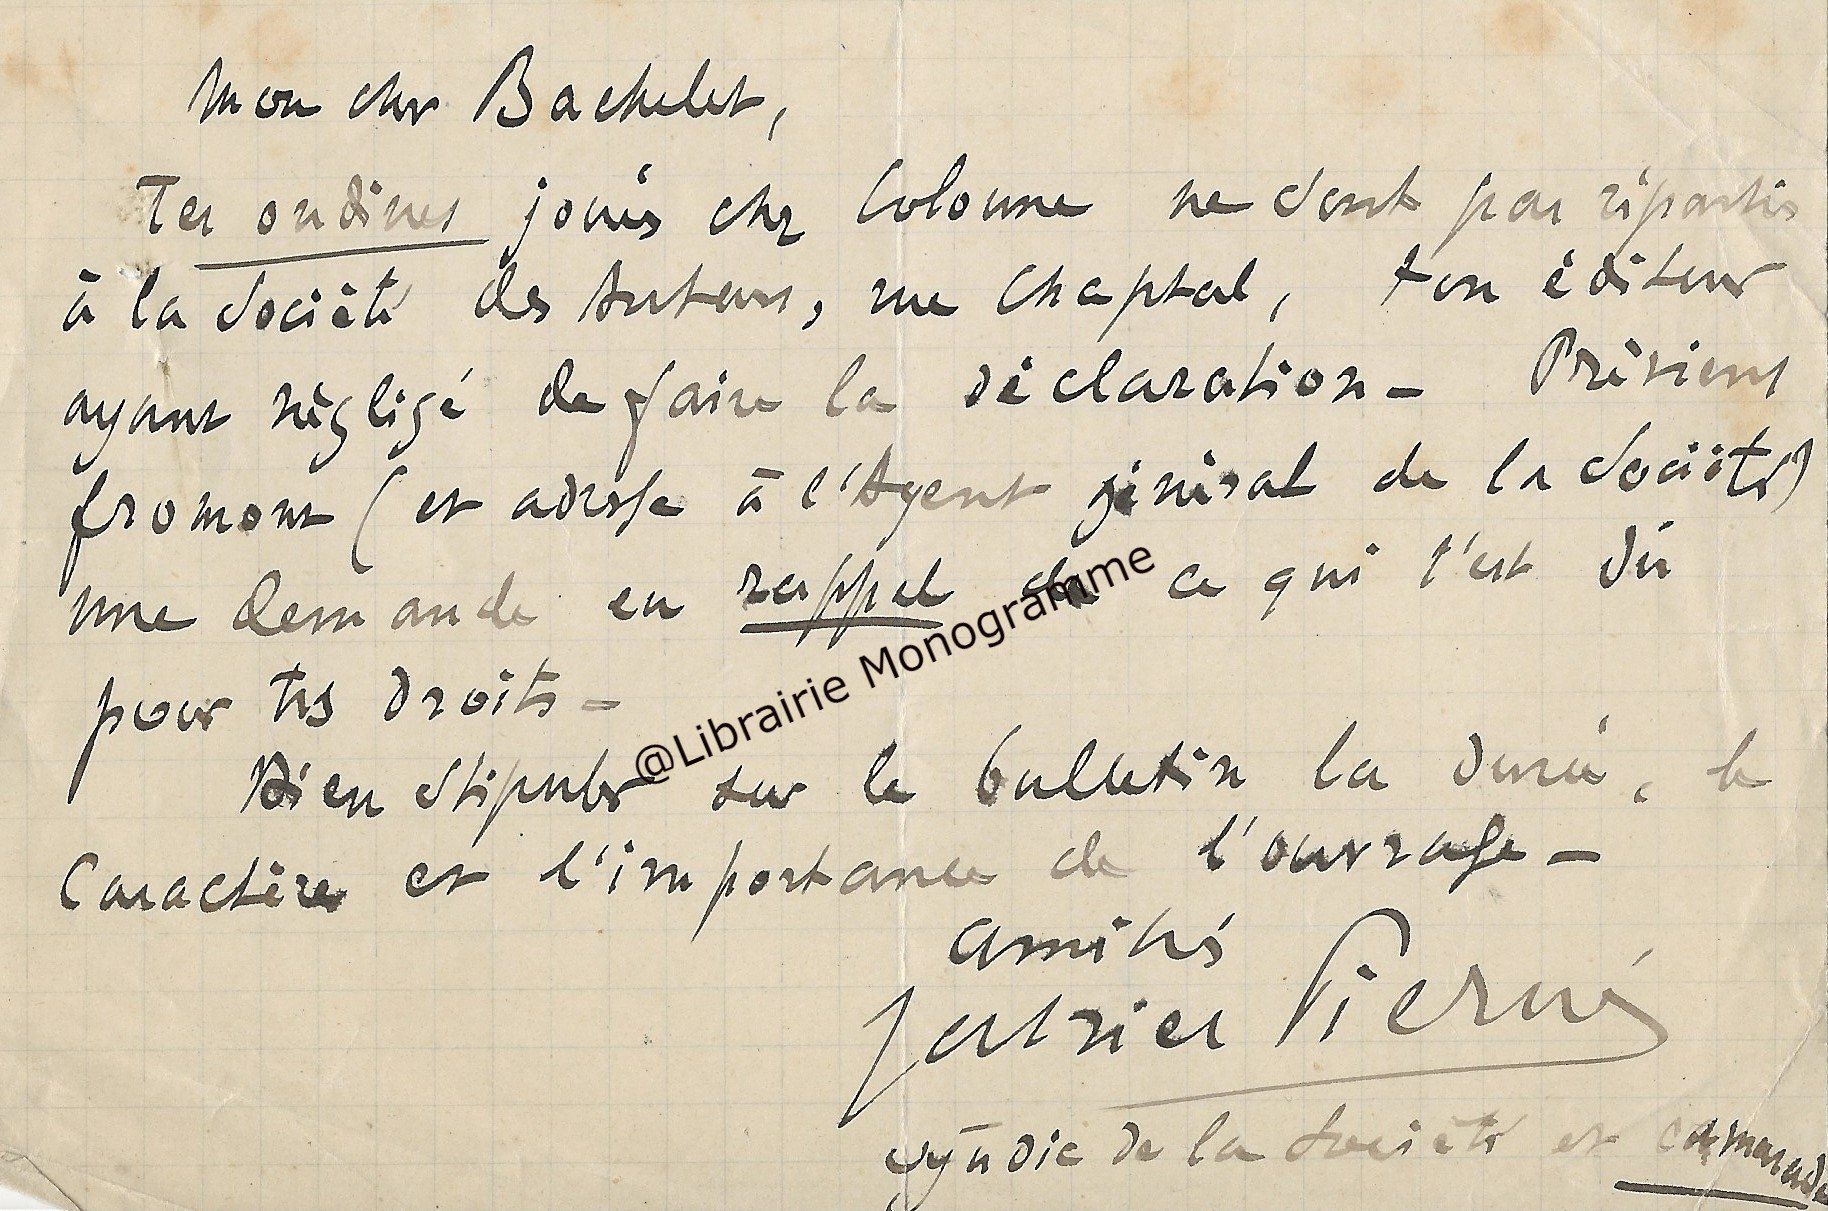 Mon cher Bachelet,
Tes ondines jouées chez Colonne ne sont pas réparties
à la Société des Auteurs, rue Chaptal, ton éditeur
ayant négligé de faire la déclaration – Préviens
fromont (et adresse à l'Agent général de la Société)
une demande en rappel de ce qui t'est dû
pour tes droits –
@Librairie Monogramme
Bien stipuler sur le bulletin la durée, le
Caractère et l'importance de l'ouvrage –
amitiés
Gabriel Pierné
syndic de la Société et camarade